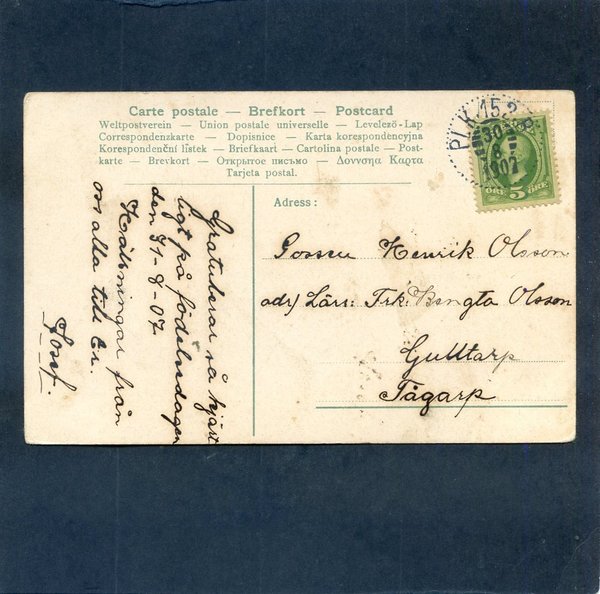 Carte postale — Brefkort — Postcard
Weltpostverein — Union postale universelle — Levelező-Lap
Correspondenzkarte — Dopisnice — Karta korespondencyjna
Korespondenční lístek — Briefkaart — Cartolina postale — Post-
karte — Brevkort — Открытое письмо — Δοννσηα Καρτα
Tarjeta postal.
PLK 152
30
8
1907
ÖRE 5 ÖRE
Adress:
Gossen Henrik Olsson
adr/ Lärs: Frk. Bengta Olsson
Gulltarp
Tågarp
Gratulerar så hjärt
ligt på födelsedagen
den 31-8-07
Hälsningar från
oss alla till Er.
Josef.